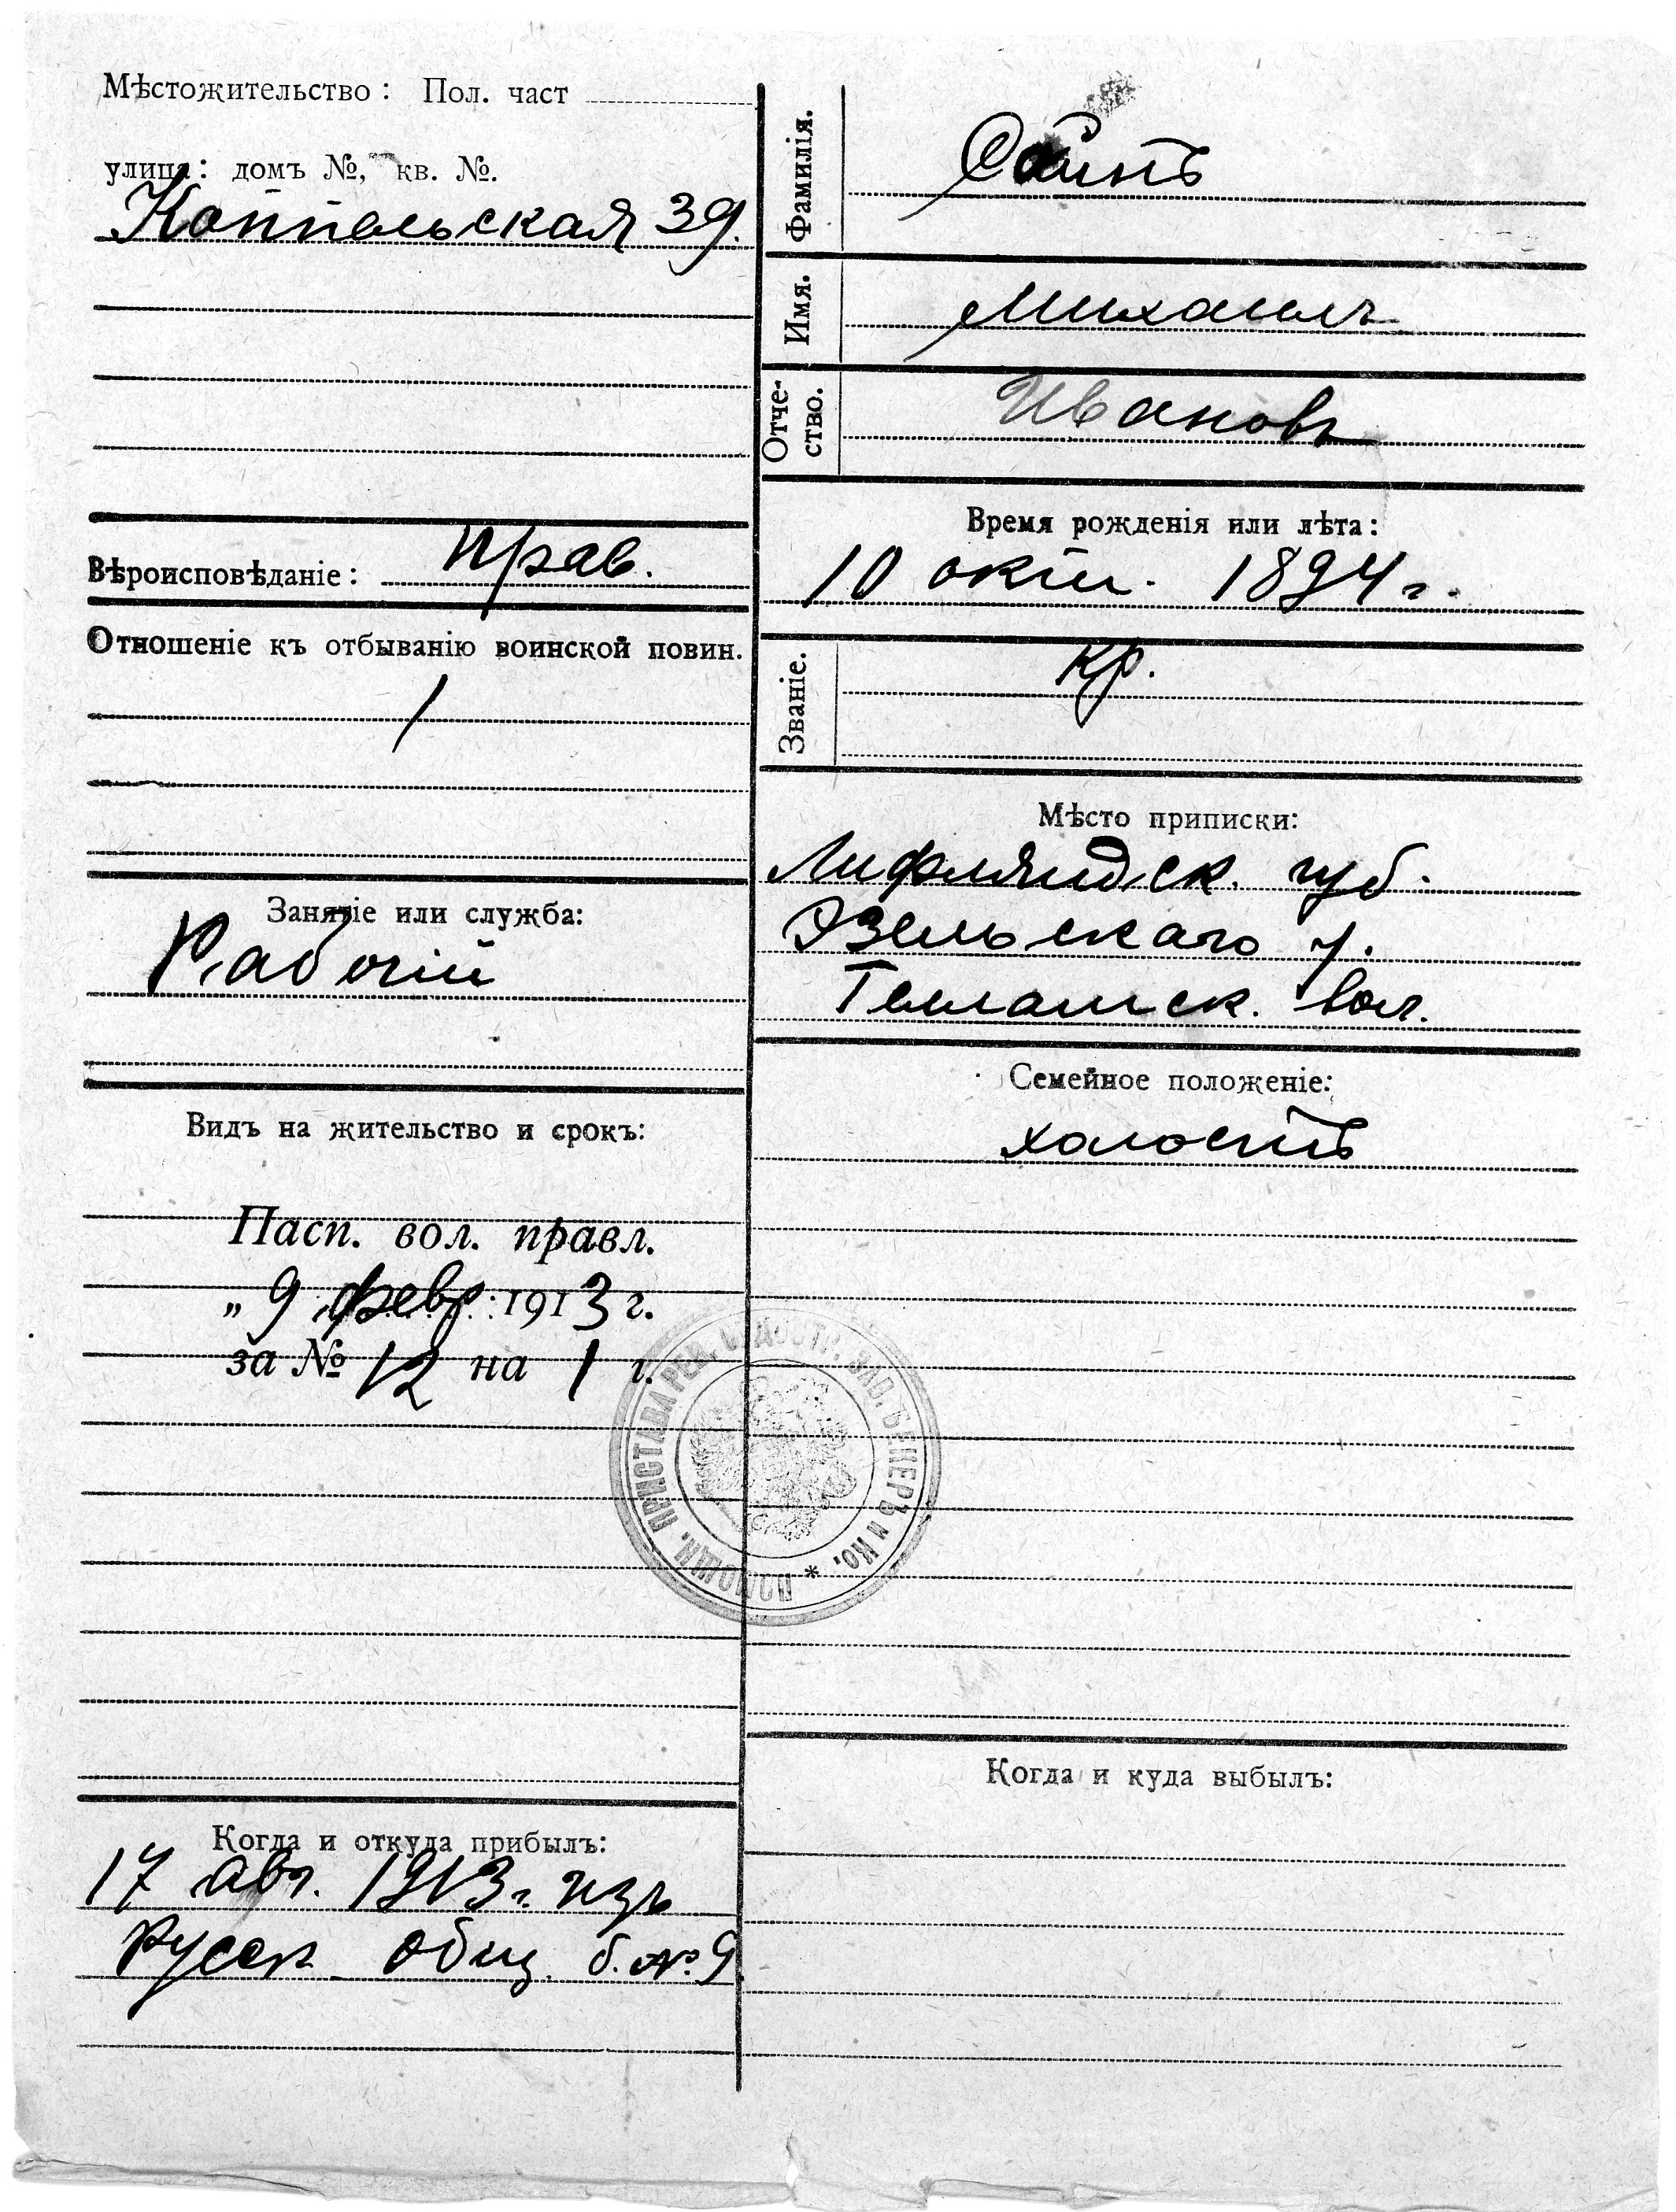 Мѣстожительство: Пол. част
улица: домъ №, кв. №.
Коппельская 39.
Вѣроисповѣданіе: прав.
Отношеніе къ отбыванію воинской повин.
/
Занятіе или служба:
Рабочій
Видъ на жительство и срокъ:
Пасп. вол. правл.
„ 9 февр. 1913 г.
за № 12 на 1 г.
Когда и откуда прибылъ:
17 авг. 1913 г. изъ
Русск. общ. б. № 9
Фамилія.
Имя. Михаилъ
Отчество. Ивановъ
Время рожденія или лѣта:
10 окт. 1894 г.
Званіе. кр.
Мѣсто приписки:
Лифляндск. губ.
Эзельскаго у.
вол.
Семейное положеніе:
холостъ
ПОМОЩН. ПРИСТАВА РЕВ. СУДОСТР. ЗАВ. БЕКЕРЪ и Ко. *
Когда и куда выбылъ: